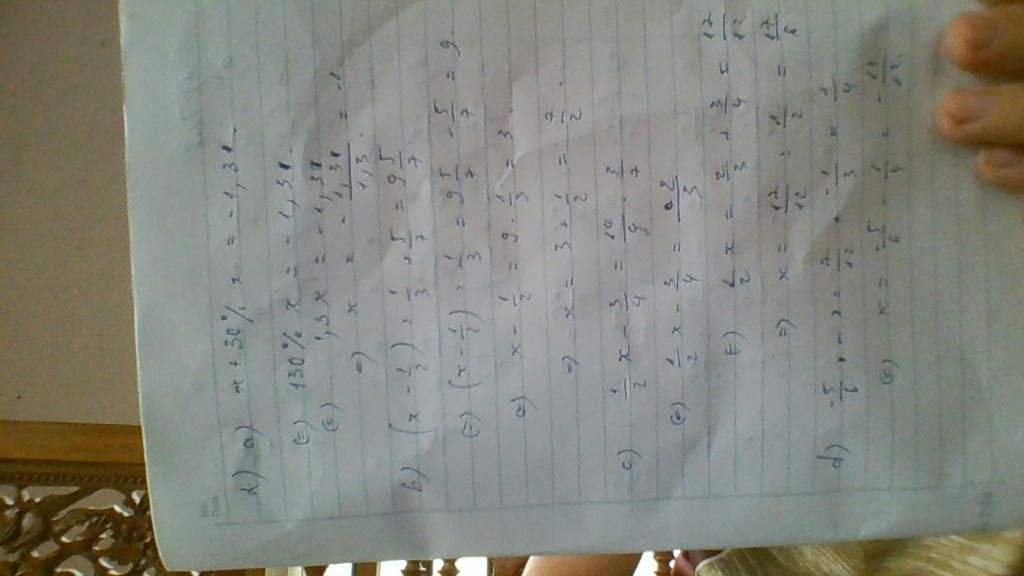 2) a) x + 30% x = -1,31
(=) 130% x = -1,31
(=) 1,3 x = -1,31
=) x = -1,31/1,3 = 1
b) (x - 1/2) . 1/3 + 5/7 = 9 5/7
(=) (x - 1/2) . 1/3 = 9 5/7 - 5/7 = 9
(=) x - 1/2 = 9 . 1/3 = 3
=) x = 3 + 1/2 = 7/2 .
c) 1/2 x - 3/4 = 14/9 . 3/7
(=) 1/2 x - 3/4 = 2/3
(=) 1/2 x = 2/3 + 3/4 = 17/12
=) x = 17/12 : 1/2 = 17/6
d) -5/6 - x = 7/12 + -1/3 = 1/4
(=) x = -5/6 - 1/4 = -